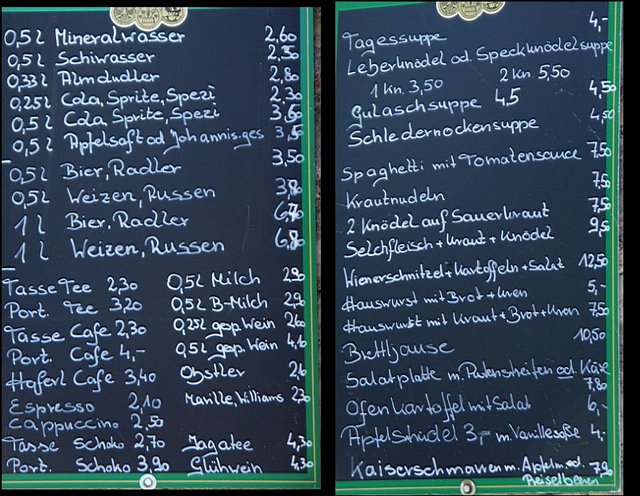 0,5 l Mineralwasser 2,60
0,5 l Schiwasser 2,50
0,33 l Almdudler 2,80
0,25 l Cola, Sprite, Spezi 2.30
0,5 l Cola, Sprite, Spezi 3,60
0,5 l Apfelsaft od Johannis.ges 3,50
0,5 l Bier, Radler 3,50
0,5 l Weizen, Russen
1 l Bier, Radler
1 l Weizen, Russen 6,80
Tasse Tee 2,30
Port. Tee 3,20
Tasse Cafe 2,30
Port. Cafe 4,-
Haferl Cafe 3,40
Espresso 2,10
Cappuccino 2,50
Tasse Schoko 2,70
Port. Schoko 3,90
0,5 l Milch 2.90
0,5 l B-Milch 2,90
0,25 l gesp. Wein 2,60
0,5 l gesp. Wein
Obstler
Marille, Williams
Jagatee 4,30
Glühwein 4,30
Tagessuppe 4,-
Leberknödel od. Speckknödelsuppe
1 Kn. 3,50 2 Kn 5,50
Gulaschsuppe 4,5 4,50
Schledernockensuppe 4,50
Spaghetti mit Tomatensauce 7,50
Krautnudeln 7,50
2 Knödel auf Sauerkraut 7,50
Selchfleisch + Kraut + Knödel 9,5
Wienerschnitzel + Kartoffeln + Salat 12,50
Hauswurst mit Brot + Kren 5,-
Hauswurst mit Kraut + Brot + Kren 7,50
Brettljause 10,50
Salatplatte m. Putenstreifen od. Käse 7,80
Ofenkartoffel mit Salat 6,-
Apfelstrudel 3,- m. Vanillesoße 4,-
Kaiserschmarren m. Apfelm. od. 7,90
Preiselbeeren